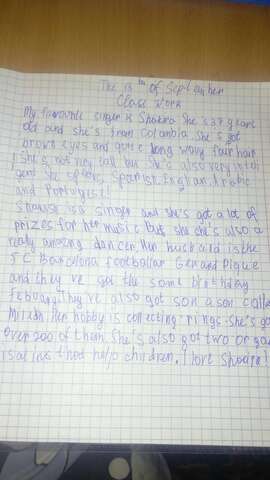 The 13th of September
Class work
My favourite singer is Shakira She's 37 years
old and she's from Colombia She's got
brown eyes and quite long wavy fair hair
She's not very tall but she's also very
She Spanish, English, Arabic
and
is a singer and she's got a lot of
prizes for her music but she she's also a
really amazing dancer. Her husband is the
FC Barcelona footballar Gerard Pique
and they've got the same birthday
They've also got son a son calle
Her hobby is collecting rings. She's go
over 200 of them. She's also got two or
that help children. I love